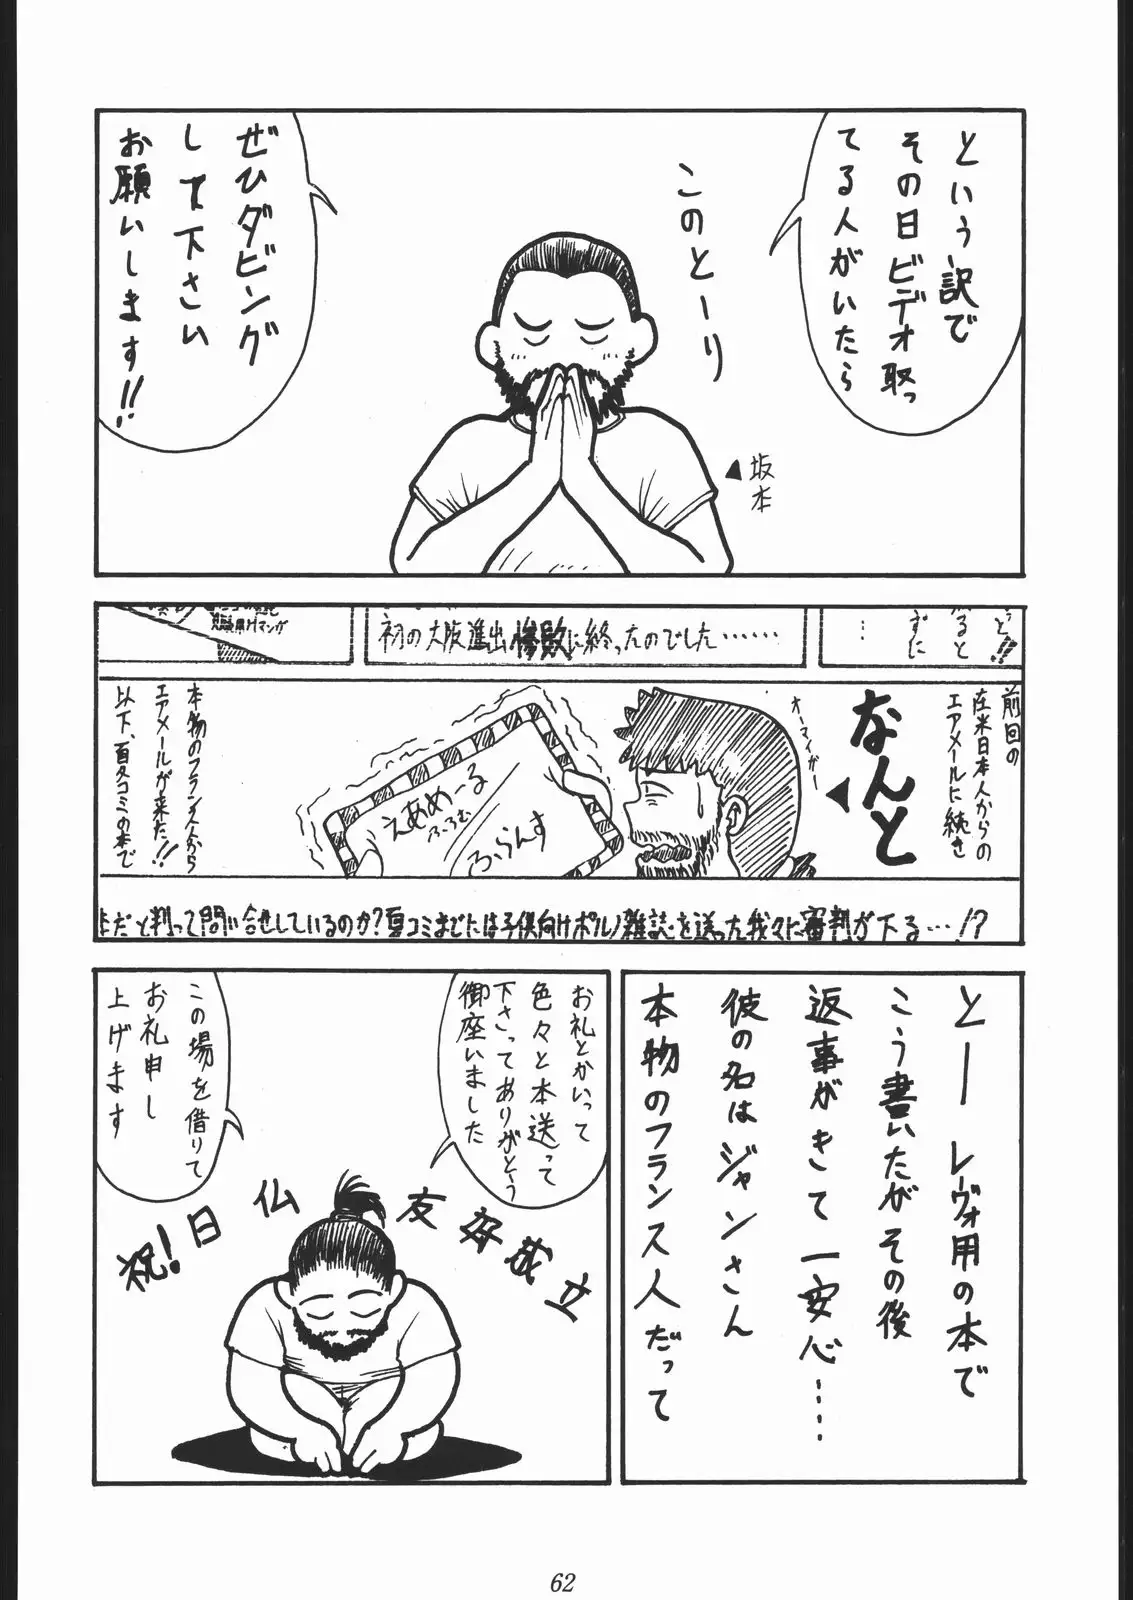 という訳で
その日ビデオ取っ
てる人がいたら
このとーり
ぜひダビング
して下さい
お願いします!!
坂本
ると
ずに
初の大阪進出惨敗に終ったのでした……
向けマンガ
前回の
在米日本人からの
エアメールに続き
なんと
オーマイガー
えあめーる
ふろむ
ふらんす
本物のフランス人から
エアメールが来た!!
以下、夏冬コミの本で
だと判って問い合せしているのか?夏コミまでには子供向けポルノ雑誌を送った我々に審判が下る…!?
とー レーヴォ用の本で
こう書いたがその後
返事がきて一安心……
彼の名はジャンさん
本物のフランス人だって
お礼とかいって
色々と本送って
下さってありがとう
御座いました
この場を借りて
お礼申し
上げます
祝!日仏友好成立
62